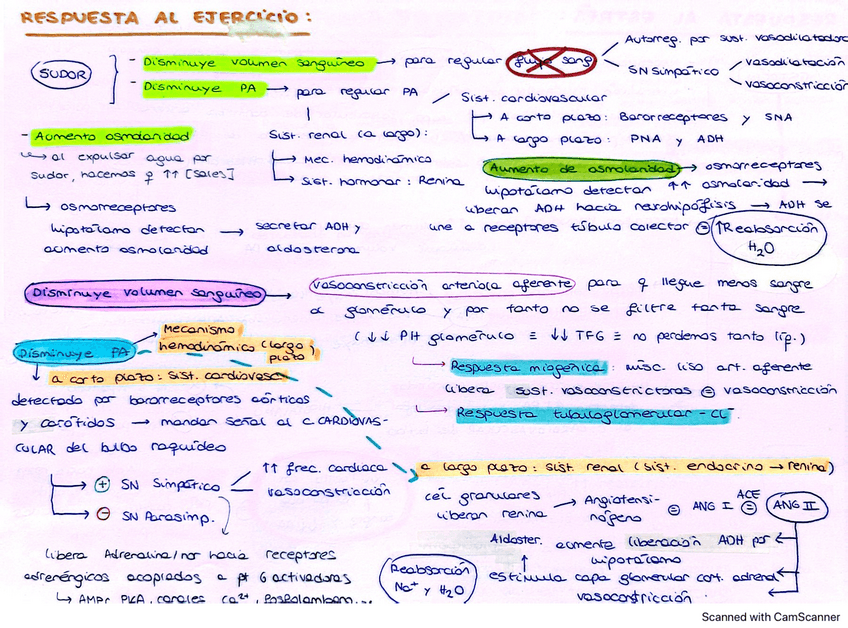 RESPUESTA AL EJERCICIO:
SUDOR
- Disminuye volumen sanguíneo → para regular flujo sang
Autorreg. por sust. vasodilatadora
SN Simpático
vasodilatación
vasoconstricción
- Disminuye PA → para regular PA
Sist. cardiovascular
→ A corto plazo: Barorreceptores y SNA
→ A largo plazo: PNA y ADH
Sist. renal (a largo):
→ Mec. hemodinámico
→ Sist. hormonal: Renina
- Aumento osmolaridad
↳ al expulsar agua por
sudor, hacemos q ↑↑ [sales]
↳ osmorreceptores
hipotálamo detectan → secretar ADH y
aumento osmolaridad aldosterona
Aumento de osmolaridad → osmorreceptores
hipotálamo detectan ↑↑ osmolaridad →
liberan ADH hacia neurohipófisis → ADH se
une a receptores túbulo colector = ↑Reabsorción
H2O
Disminuye volumen sanguíneo → vasoconstricción arteriola aferente para q llegue menos sangre
al glomérulo y por tanto no se filtre tanta sangre
(↓↓ PH glomérulo ≡ ↓↓ TFG ≡ no perdemos tanto líq.)
→ Respuesta miogénica: músc. liso art. aferente
libera sust. vasoconstrictoras = vasoconstricción
→ Respuesta tubuloglomerular - Cl-
Disminuye PA → Mecanismo
hemodinámico (largo
plazo)
a corto plazo: Sist. cardiovasc
detectado por barorreceptores aórticos
y carótidos → mandan señal al C. CARDIOVAS-
CULAR del bulbo raquídeo
→ + SN Simpático
↑↑ frec. cardiaca
vasoconstricción
→ - SN Parasimp.
libera Adrenalina/nor hacia receptores
adrenérgicos acoplados a pt G activadores
↳ AMPc PKA, canales Ca2+, fosfolamban...
a largo plazo: sist. renal (sist. endocrino → renina)
cél granulares
liberan renina → Angiotensi-
nógeno = ANG I = ACE ANG II
Aldoster. aumenta liberación ADH por ←
hipotálamo
↑ estimula capa glomerular cort. adrenal ←
vasoconstricción ←
Reabsorción
Na+ y H2O
Scanned with CamScanner